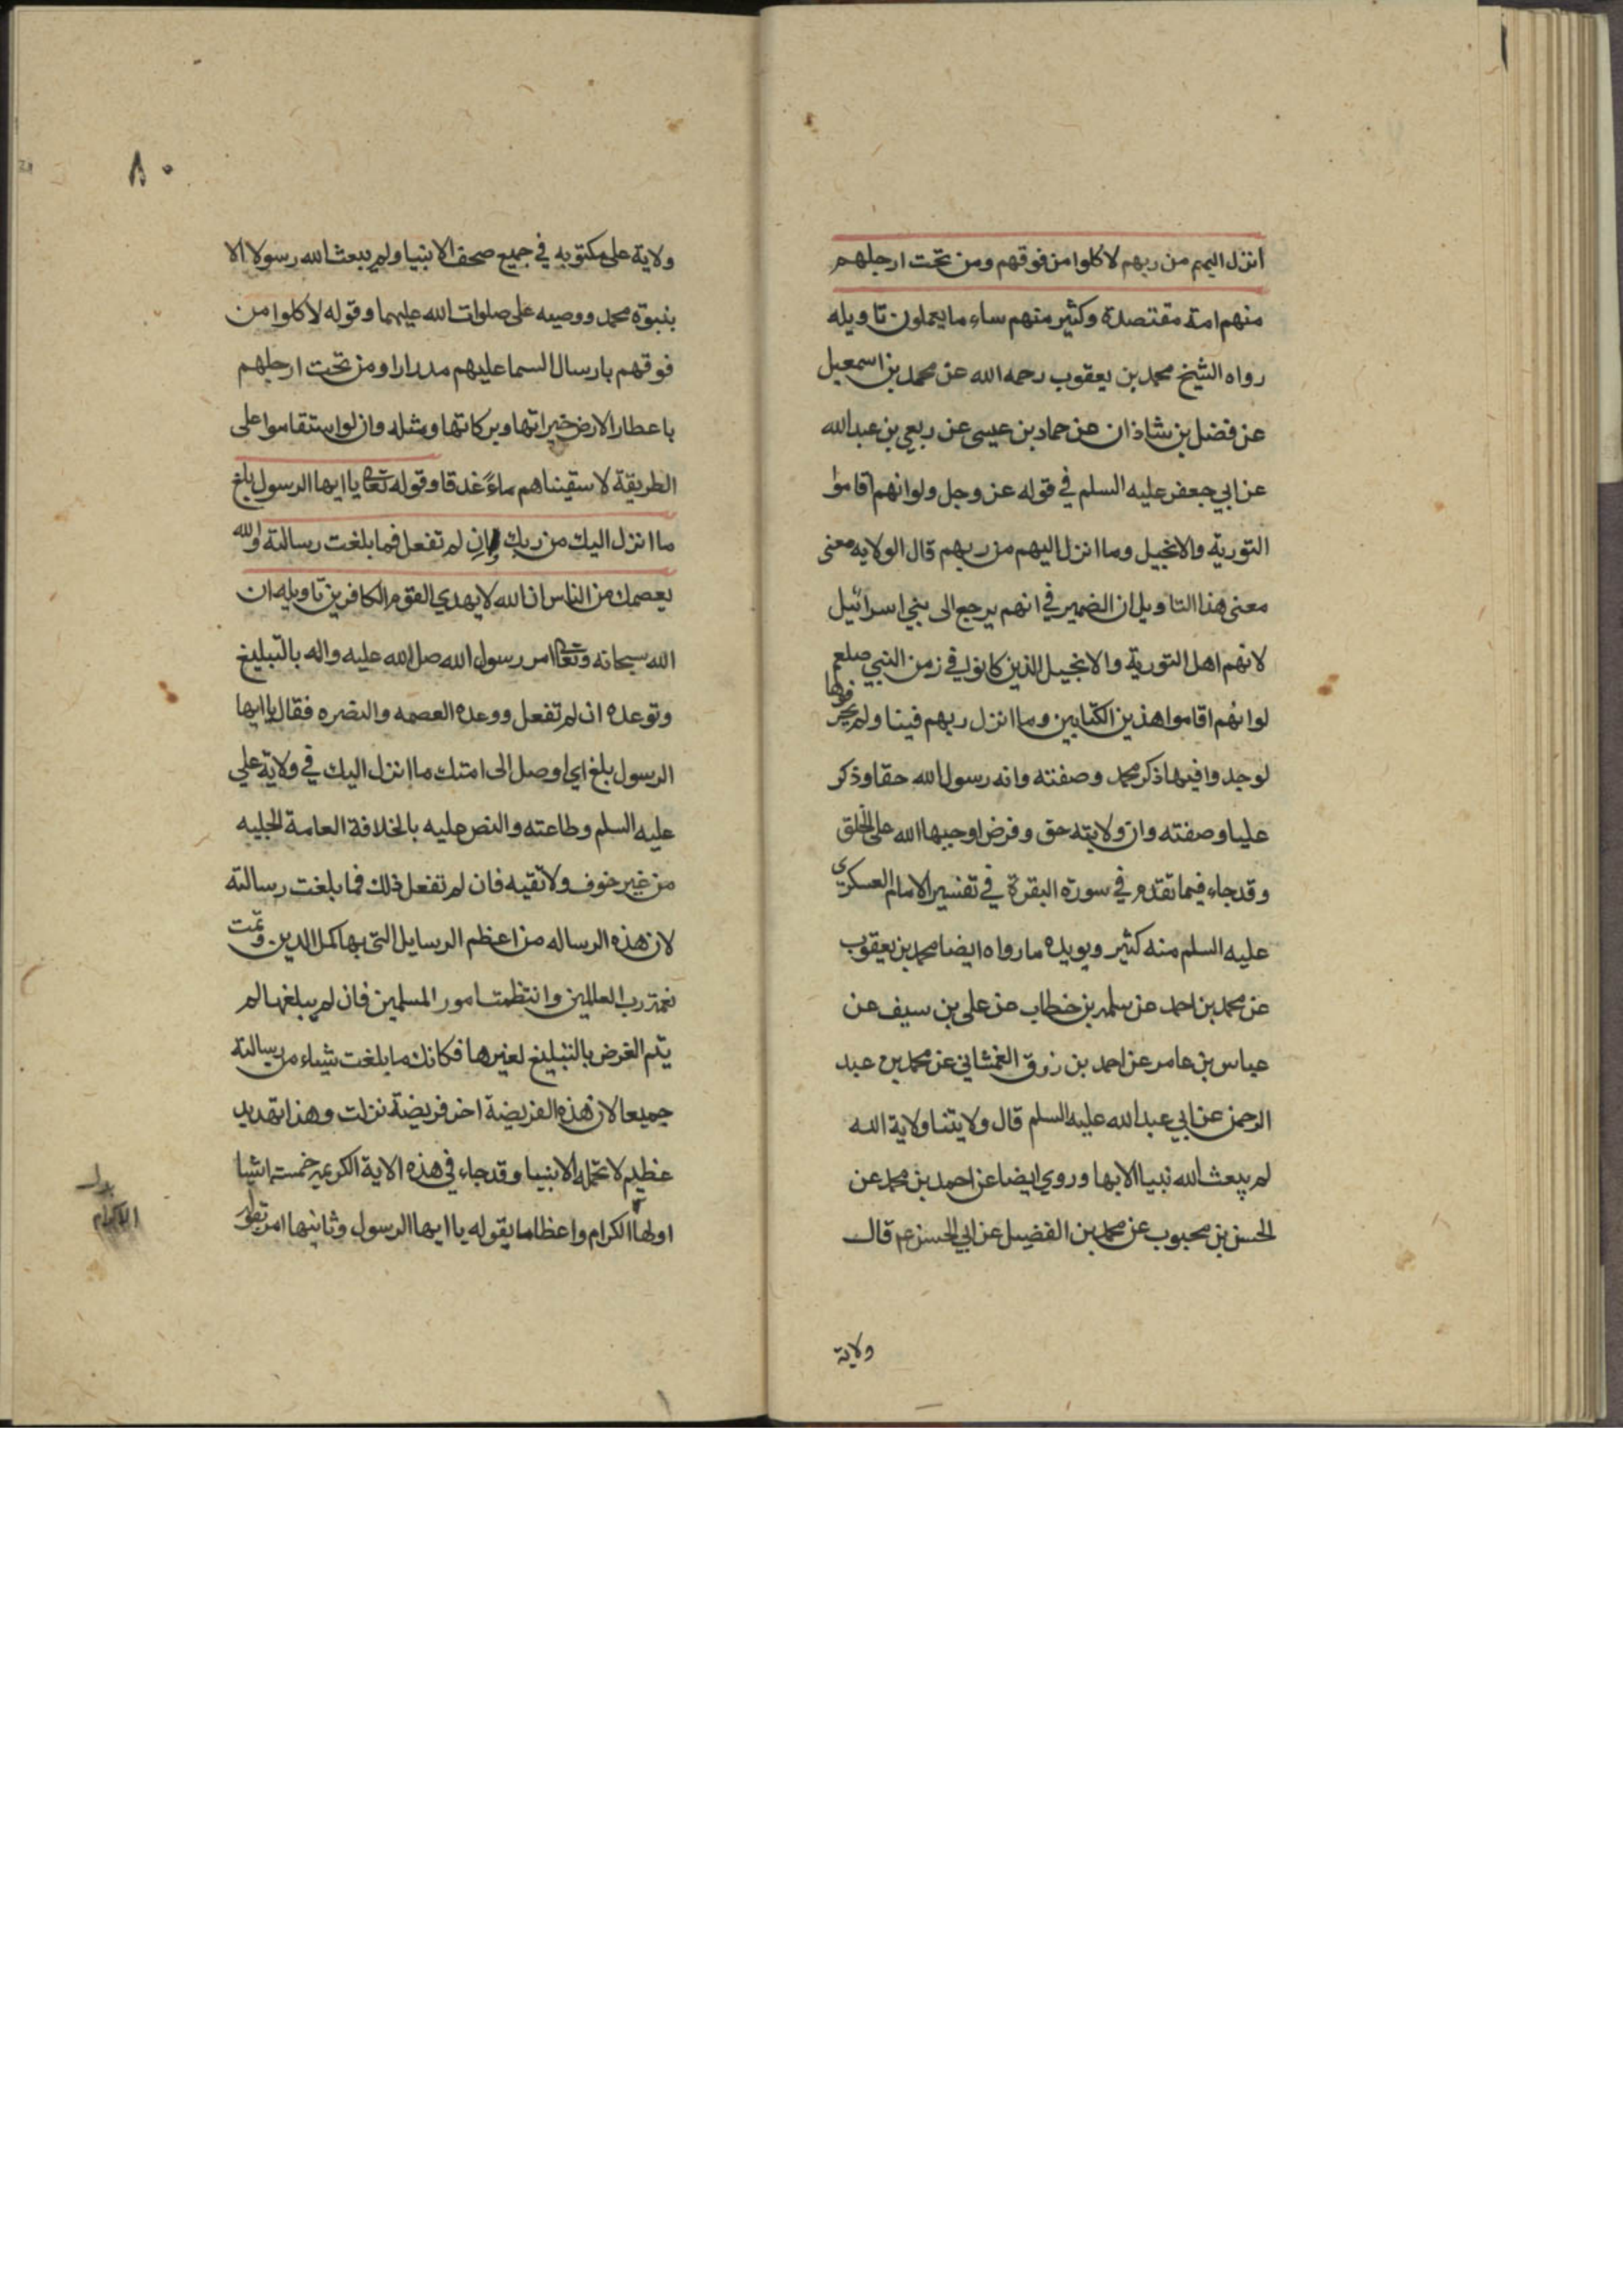 انزل اليهم من ربهم لاكلوا من فوقهم ومن تحت ارجلهم
منهم امة مقتصدة وكثير منهم ساء ما يعملون تاويله
رواه الشيخ محمد بن يعقوب رحمه الله عن محمد بن اسمعيل
عن فضل بن شاذان عن حماد بن عيسى عن ربعي بن عبدالله
عن ابي جعفر عليه السلم في قوله عز وجل ولو انهم اقاموا
التورية والانجيل وما انزل اليهم من ربهم قال الولايه معنى
معنى هذا التاويل ان الضمير في انهم يرجع الى بني اسرائيل
لانهم اهل التورية والانجيل الذين كانوا في زمن النبي صلعم
لو انهم اقاموا هذين الكتابين وما انزل ربهم فينا ولم يحرفوها
لوجدوا فيها ذكر محمد وصفته وانه رسول الله حقا وذكر
عليا وصفته وان ولايته حق وفرض اوجبها الله على الخلق
وقد جاء فيما تقدم في سورة البقرة في تفسير الامام العسكرى
عليه السلم منه كثير ويويده ما رواه ايضا محمد بن يعقوب
عن محمد بن احمد عن سلمه بن خطاب عن علي بن سيف عن
عباس بن عامر عن احمد بن رزق الغمشاني عن محمد بن عبد
الرحمن عن ابي عبد الله عليه السلم قال ولايتنا ولاية الله
لم يبعث الله نبيا الا بها وروي ايضا عن احمد بن محمد عن
الحسن بن محبوب عن محمد بن الفضيل عن ابي الحسن عم قال
ولاية
٨٠
ولاية على مكتوبه في جميع صحف الانبيا ولم يبعث الله رسولا الا
بنبوة محمد ووصيه على صلوات الله عليهما وقوله لاكلوا من
فوقهم بارسال السما عليهم مدرارا ومن تحت ارجلهم
باعطا الارض خيراتها وبركاتها ومثله وان لو استقاموا على
الطريقة لاسقيناهم ماءً غدقا وقوله تعا يا ايها الرسول بلغ
ما انزل اليك من ربك وان لم تفعل فما بلغت رسالته والله
يعصمك من الناس ان الله لا يهدي القوم الكافرين تاويله ان
الله سبحانه وتعا امر رسول الله صلى الله عليه واله بالتبليغ
وتوعده ان لم تفعل ووعده العصمه والنصره فقال يا ايها
الرسول بلغ اي اوصل الى امتك ما انزل اليك في ولاية علي
عليه السلم وطاعته والنص عليه بالخلافة العامة الجليه
من غير خوف ولا تقيه فان لم تفعل ذلك فما بلغت رسالته
لان هذه الرساله من اعظم الرسايل التى بها كمل الدين وتمت
نعمة رب العالمين وانتظمت امور المسلمين فان لم يبلغها لم
يتم الغرض بالتبليغ لغيرها فكانك ما بلغت شياء من رسالته
جميعا لان هذه الفريضة اخر فريضة نزلت وهذا تهديد
عظيم لا تحمله الانبيا وقد جاء في هذه الاية الكريمه خمسة اشيا
اولها الكرام واعظاما بقوله يا ايها الرسول وثانيها امر